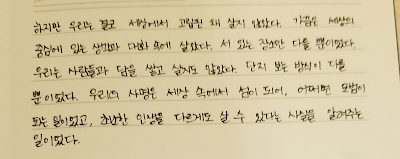 하지만 우리는 결코 세상에서 고립된 채 살지 않았다. 가끔은 세상의
중심에 있는 생각과 대화 속에 살았다. 서 있는 장소만 다를 뿐이었다.
우리는 사람들과 담을 쌓고 살지도 않았다. 단지 보는 방식이 다를
뿐이었다. 우리의 사명은 세상 속에서 섬이 되어, 어쩌면 모범이
되는 일이었고, 또 다른 인생을 다르게도 살 수 있다는 사실을 알려주는
일이었다.